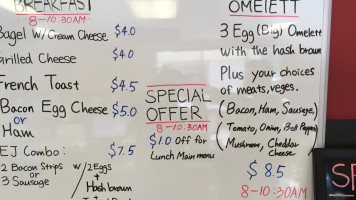 BREAKFAST
8-10:30AM
Bagel w/Cream Cheese $4.0
Grilled Cheese $4.0
French Toast $4.5
Bacon Egg Cheese $5.0
or
Ham
EJ Combo: $7.5
2 Bacon Strips
or
3 Sausage
w/2Eggs
+
Hash brown
SPECIAL
OFFER
8-10:30AM
$1.0 off for
Lunch Main menu
OMELETT
3 Egg (Big) Omelett
with the hash brown
Plus your choices
of meats, veges.
(Bacon, Ham, Sausage,)
(Tomato, Onion, Bell Peppers)
(Mushrom, Cheddar
Cheese)
$8.5
8-10:30AM